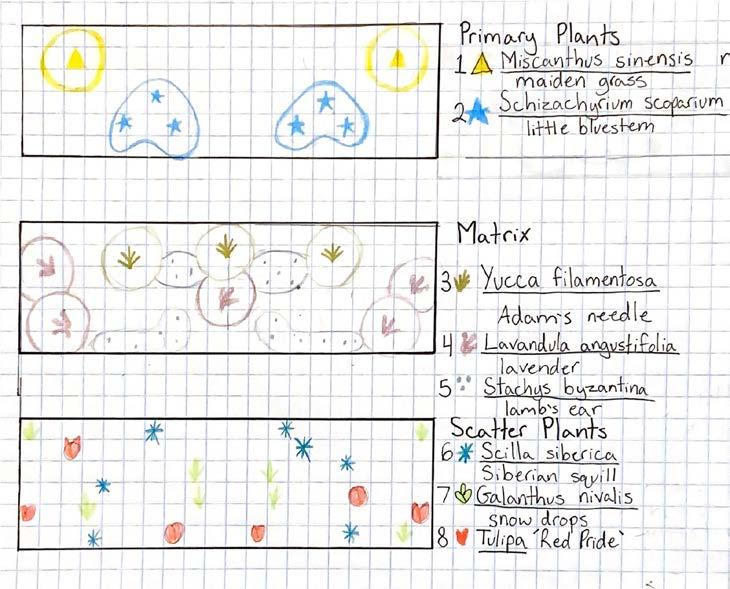 Primary Plants
1 Miscanthus sinensis
maiden grass
2 Schizachyrium scoparium
little bluestem
Matrix
3 Yucca filamentosa
Adam's needle
4 Lavandula angustifolia
lavender
5 Stachys byzantina
lamb's ear
Scatter Plants
6 Scilla siberica
Siberian squill
7 Galanthus nivalis
snow drops
8 Tulipa 'Red Pride'